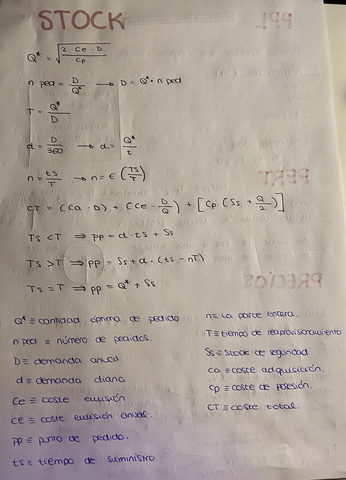 STOCK
Q* = √(2 · Ce · D / Cp)
nº ped = D/Q* → D = Q* · nº ped
T = Q*/D
d = D/360 → d = Q*/t
n = ts/T → n = E (TS/T)
CT = (Ca · D) + (Ce · D/Q) + [Cp (Ss + Q/2)]
TS < T ⇒ pp = d · ts + Ss
TS > T ⇒ pp = Ss + d · (ts - nT)
TS = T ⇒ pp = Q* + Ss
Q* ≡ cantidad óptima de pedido
nº ped ≡ número de pedidos.
D ≡ demanda anual
d ≡ demanda diaria
Ce ≡ coste emisión
CE ≡ coste emisión anual.
PP ≡ punto de pedido.
ts ≡ tiempo de suministro
n ≡ La parte entera.
T ≡ tiempo de reaprovisionamiento
Ss ≡ Stock de seguridad
Ca ≡ coste adquisición.
Cp ≡ coste de posesión.
CT ≡ coste total.